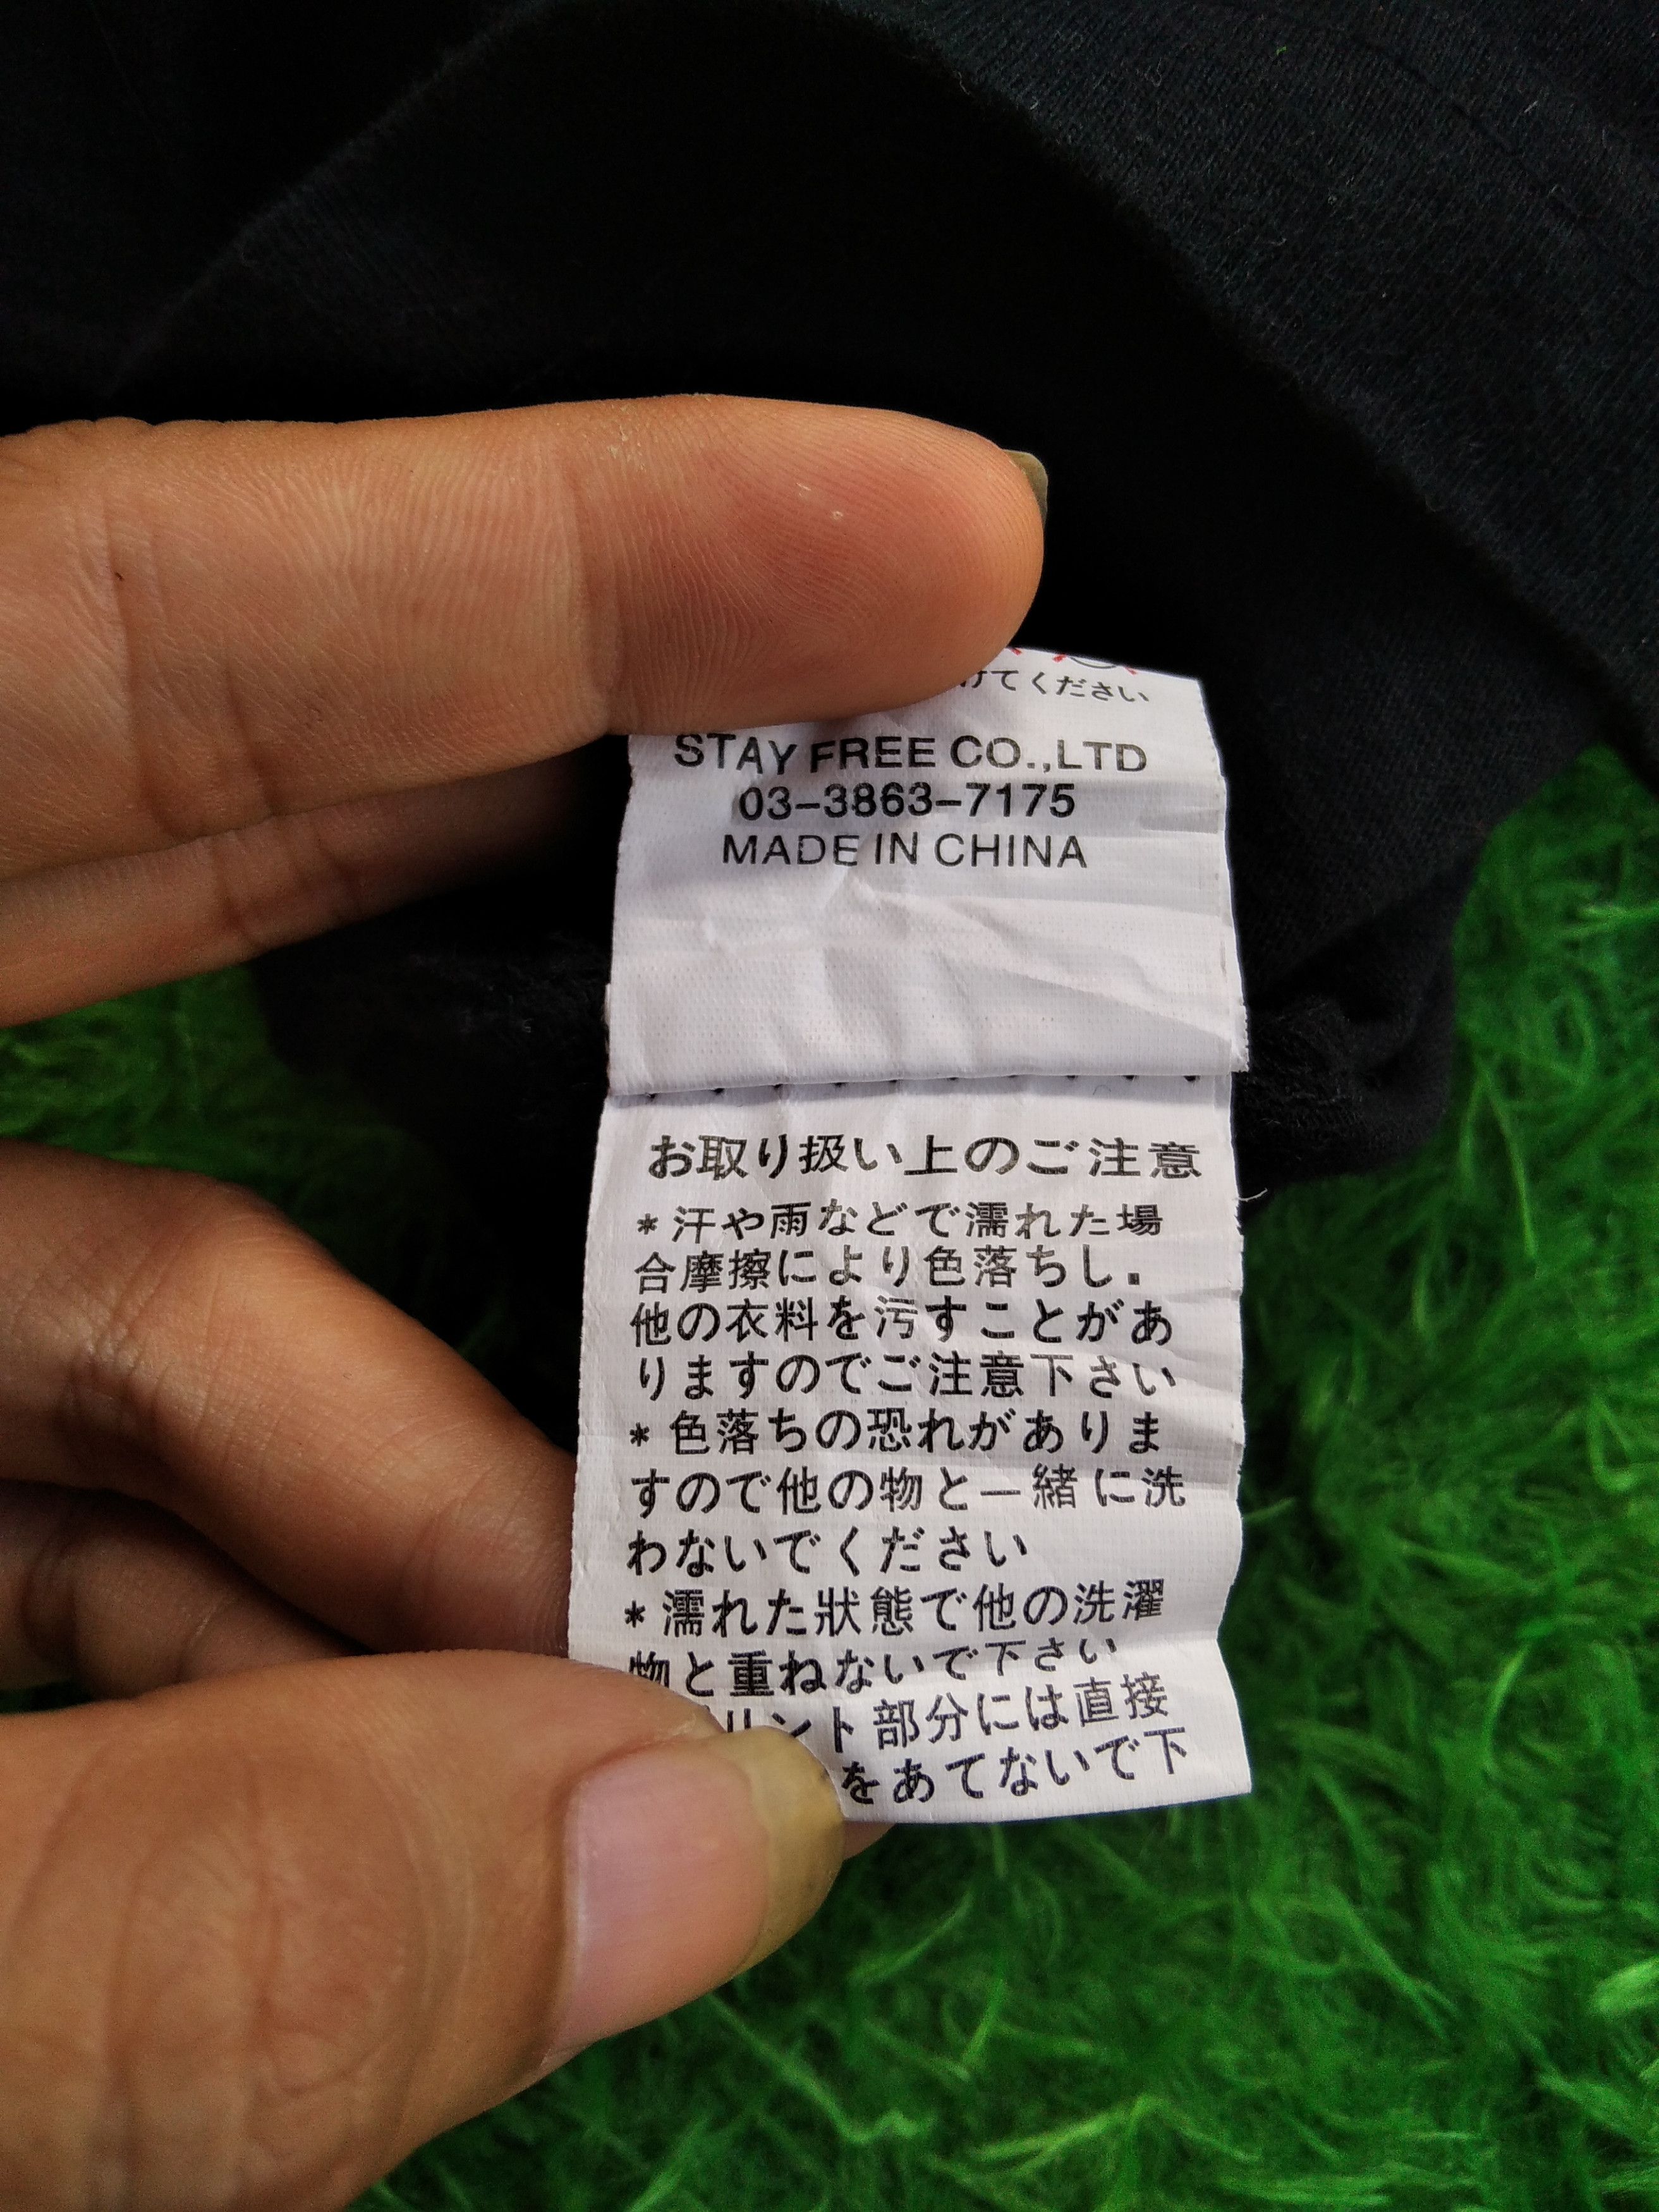 けてください
STAY FREE CO.,LTD
03-3863-7175
MADE IN CHINA
お取り扱い上のご注意
* 汗や雨などで濡れた場
合摩擦により色落ちし.
他の衣料を污すことがあ
りますのでご注意下さい
* 色落ちの恐れがありま
すので他の物と一緒に洗
わないでください
* 濡れた狀態で他の洗濯
物と重ねないで下さい
リント部分には直接
をあてないで下